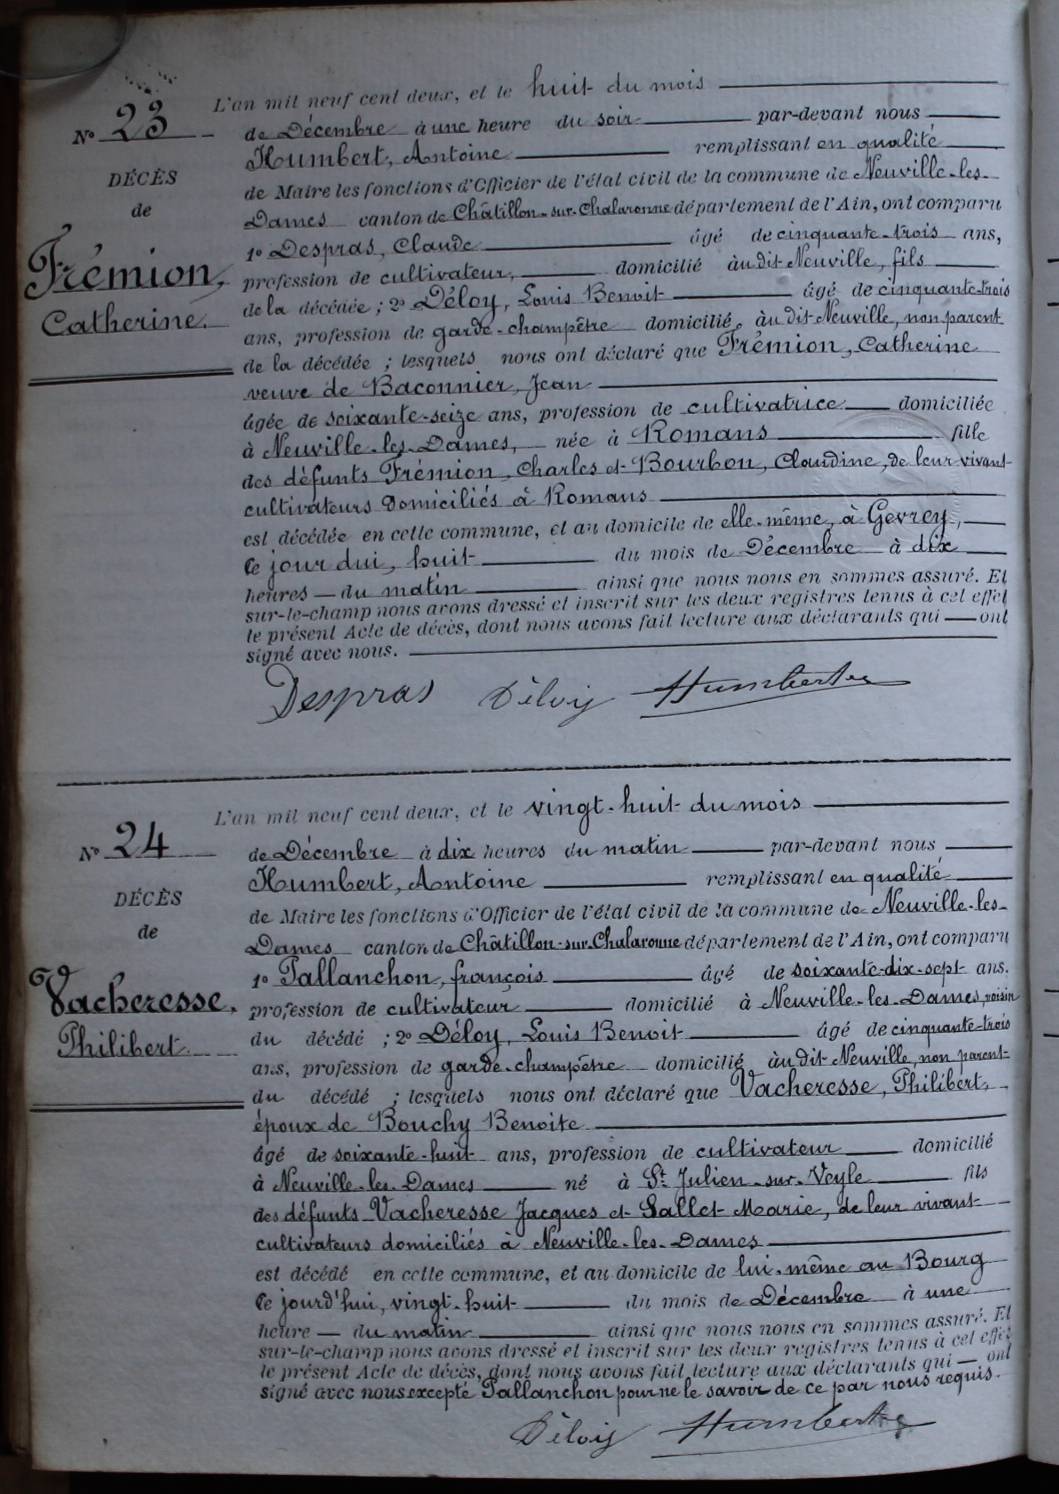 L'an mil neuf cent deux, et le huit du mois
N° 23
de Décembre à une heure du soir par-devant nous
Humbert, Antoine remplissant en qualité
DÉCÈS
de
Frémion,
Catherine.
de Maire les fonctions d'Officier de l'état civil de la commune de Neuville-les-
Dames canton de Châtillon-sur-Chalaronne département de l'Ain, ont comparu
1° Despras, Claude âgé de cinquante-trois ans,
profession de cultivateur, domicilié audit Neuville, fils
de la décédée ; 2° Déloy, Louis Benoit âgé de cinquante-trois
ans, profession de garde-champêtre domicilié audit Neuville, non parent
de la décédée ; lesquels nous ont déclaré que Frémion, Catherine
veuve de Baconnier, Jean
âgée de soixante-seize ans, profession de cultivatrice domiciliée
à Neuville-les-Dames, née à Romans fille
des défunts Frémion, Charles et Bourbon, Claudine, de leur vivant
cultivateurs domiciliés à Romans
est décédée en cette commune, et au domicile de elle-même, à Gevrey,
ce jour dui, huit du mois de Décembre à dix
heures du matin ainsi que nous nous en sommes assuré. Et
sur-le-champ nous avons dressé et inscrit sur les deux registres tenus à cet effet
le présent Acte de décès, dont nous avons fait lecture aux déclarants qui ont
signé avec nous.
Despras Déloy Humbert
L'an mil neuf cent deux, et le vingt-huit du mois
N° 24
de Décembre à dix heures du matin par-devant nous
Humbert, Antoine remplissant en qualité
DÉCÈS
de
Vacheresse,
Philibert
de Maire les fonctions d'Officier de l'état civil de la commune de Neuville-les-
Dames canton de Châtillon-sur-Chalaronne département de l'Ain, ont comparu
1° Pallanchon, françois âgé de soixante-dix-sept ans.
profession de cultivateur domicilié à Neuville-les-Dames, voisin
du décédé ; 2° Déloy, Louis Benoit âgé de cinquante-trois
ans, profession de garde-champêtre domicilié audit Neuville, non parent
du décédé ; lesquels nous ont déclaré que Vacheresse, Philibert,
époux de Bouchy Benoite
âgé de soixante-huit ans, profession de cultivateur domicilié
à Neuville-les-Dames né à St Julien-sur-Veyle fils
des défunts Vacheresse Jacques et Sallet Marie, de leur vivant
cultivateurs domiciliés à Neuville-les-Dames
est décédé en cette commune, et au domicile de lui-même au Bourg
ce jourd'hui, vingt-huit du mois de Décembre à une
heure du matin ainsi que nous nous en sommes assuré. Et
sur-le-champ nous avons dressé et inscrit sur les deux registres tenus à cet effet
le présent Acte de décès, dont nous avons fait lecture aux déclarants qui ont
signé avec nous excepté Pallanchon pour ne le savoir de ce par nous requis.
Déloy Humbert